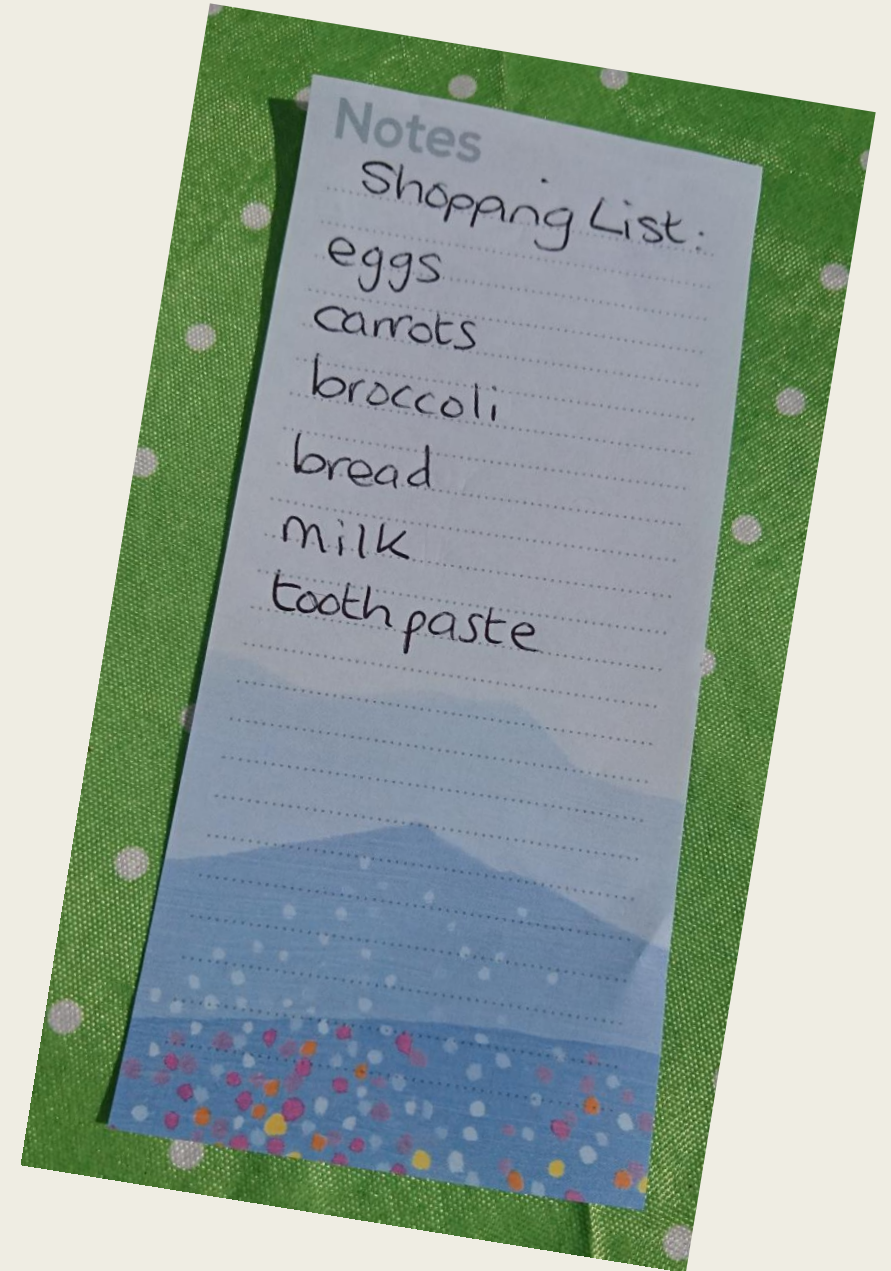 Notes
Shopping List:
eggs
carrots
broccoli
bread
milk
toothpaste